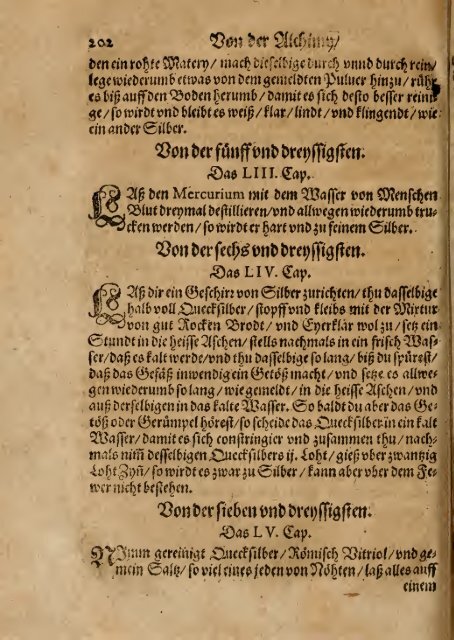 202 Von der Alchimy/
den ein rohte Matery / mach dieselbige durch vnnd durch rein /
lege wiederumb etwas von dem gemeldten Puluer hinzu / rühr
es biß auff den Boden herumb / damit es sich desto besser reini-
ge / so wirdt vnd bleibt es weiß / klar / lindt / vnd klingendt / wie
ein ander Silber.
Von der fünff vnd dreyssigsten.
Das LIII. Cap.
LAß den Mercurium mit dem Wasser von Menschen
Blut dreymal destillieren / vnd allwegen wiederumb tru-
cken werden / so wirdt er hart vnd zu feinem Silber.
Von der sechs vnd dreyssigsten.
Das LIV. Cap.
LAß dir ein Geschirr von Silber zurichten / thu dasselbige
halb voll Quecksilber / stopff vnd kleibs mit der Mixtur
von gut Rocken Brodt / vnd Eyerklär wol zu / setz ein
Stundt in die heisse Aschen / stells nachmals in ein frisch Was-
ser / daß es kalt werde / vnd thu dasselbige so lang / biß du spürest /
daß das Gefäß inwendig ein Getöß macht / vnd setze es allwe-
gen wiederumb so lang / wie gemeldt / in die heisse Aschen / vnd
auß derselbigen in das kalte Wasser. So baldt du aber das Ge-
töß oder Gerümpel hörest / so scheide das Quecksilber in ein kalt
Wasser / damit es sich constringier vnd zusammen thu / nach-
mals nim̃ desselbigen Quecksilbers ij. Loht / gieß vber zwantzig
Loht Zyn̄ / so wirdt es zwar zu Silber / kann aber vber dem Fe-
wer nicht bestehen.
Von der sieben vnd dreyssigsten.
Das LV. Cap.
NImm gereinigt Quecksilber / Römisch Vitriol / vnd ge-
mein Saltz / so viel eines jeden von Nöhten / laß alles auff
einem